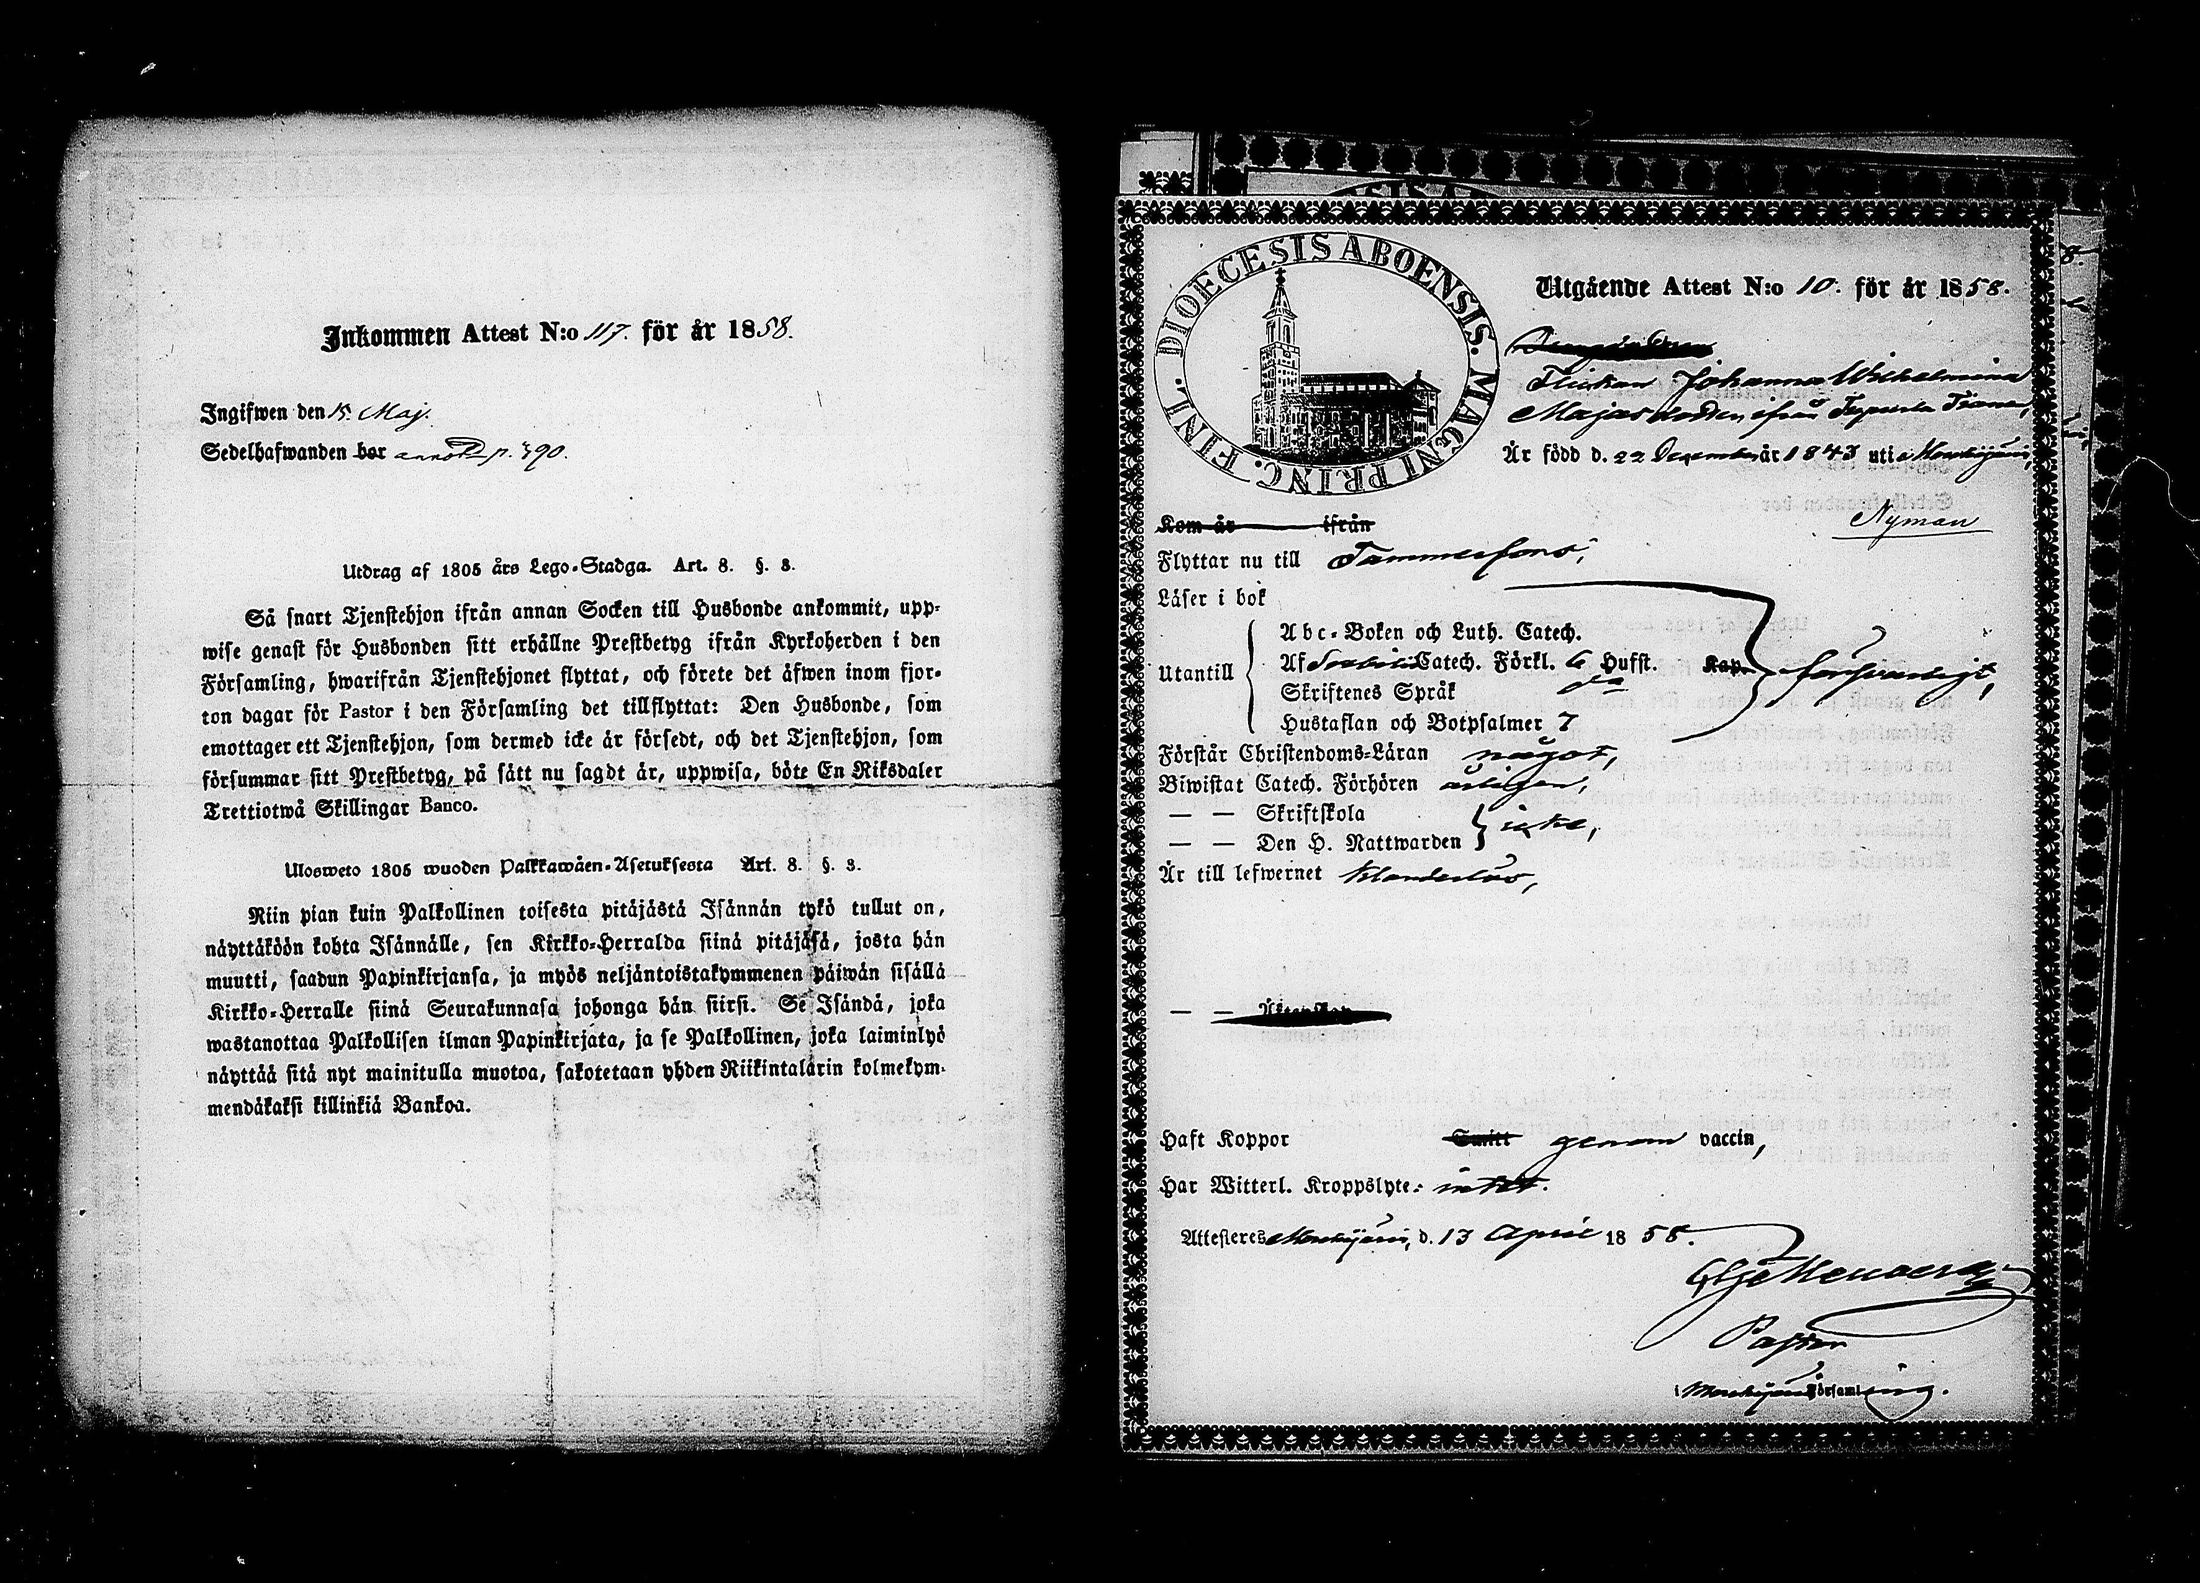 Inkommen Attest N:o 117. för år 1858.
Ingifwen den 15 Maj.
Sedelhafwanden bor annot. p. 390.
Utdrag af 1805 års Lego-Stadga. Art. 8. §. 3.
Så snart Tjenstehjon ifrån annan Socken till Husbonde ankommit, upp-
wise genast för Husbonden sitt erhållne Prestbetyg ifrån Kyrkoherden i den
Församling, hwarifrån Tjenstehjonet flyttat, och förete det äfwen inom fjor-
ton dagar för Pastor i den Församling det tillflyttat: Den Husbonde, som
emottager ett Tjenstehjon, som dermed icke är försedt, och det Tjenstehjon, som
försummar sitt Prestbetyg, på sätt nu sagdt är, uppwisa, böte En Riksdaler
Trettiotwå Skillingar Banco.
Ulosweto 1805 wuoden Palkkawäen-Asetuksesta Art. 8. §. 3.
Niin pian kuin Palkollinen toisesta pitäjästä Isännän tykö tullut on,
näyttäköön kohta Isännälle, sen Kirkko-Herralda siinä pitäjäsä, josta hän
muutti, saadun Papinkirjansa, ja myös neljäntoistakymmenen päiwän sisällä
Kirkko-Herralle siinä Seurakunnasa johonga hän siirsi. Se Isändä, joka
wastanottaa Palkollisen ilman Papinkirjata, ja se Palkollinen, joka laiminlyö
näyttää sitä nyt mainitulla muotoa, sakotetaan yhden Riikintalarin kolmekym-
mendäkaksi killinkiä Bankoa.
DIOECESIS ABOENSIS. MAGNI PRINC. FINL.
Utgående Attest N:o 10. för år 1858.
Flickan Johanna Wilhelmina
Majasdotter ifrån
Är född d. 22 December år 1843 uti Mouhijärvi,
Nyman
Kom år ifrån
Flyttar nu till Tammerfors,
Läser i bok
Utantill
Abc-Boken och Luth. Catech.
Af Svebilii Catech. Förkl. 6 Hufst. Kap.
Skriftenes Språk do
Hustaflan och Botpsalmer 7
försvarligt,
Förstår Christendoms-Läran något,
Biwistat Catech. Förhören årligen,
— — Skriftskola
— — Den H. Nattwarden
icke,
Är till lefwernet klanderlös,
— — Äktenskap
Haft Koppor Smitt genom vaccin,
Har Witterl. Kroppslyte. intet.
Attesteres Mouhijärvi, d. 13 April 1858.
Pastor
i Mouhijärvi Församling.